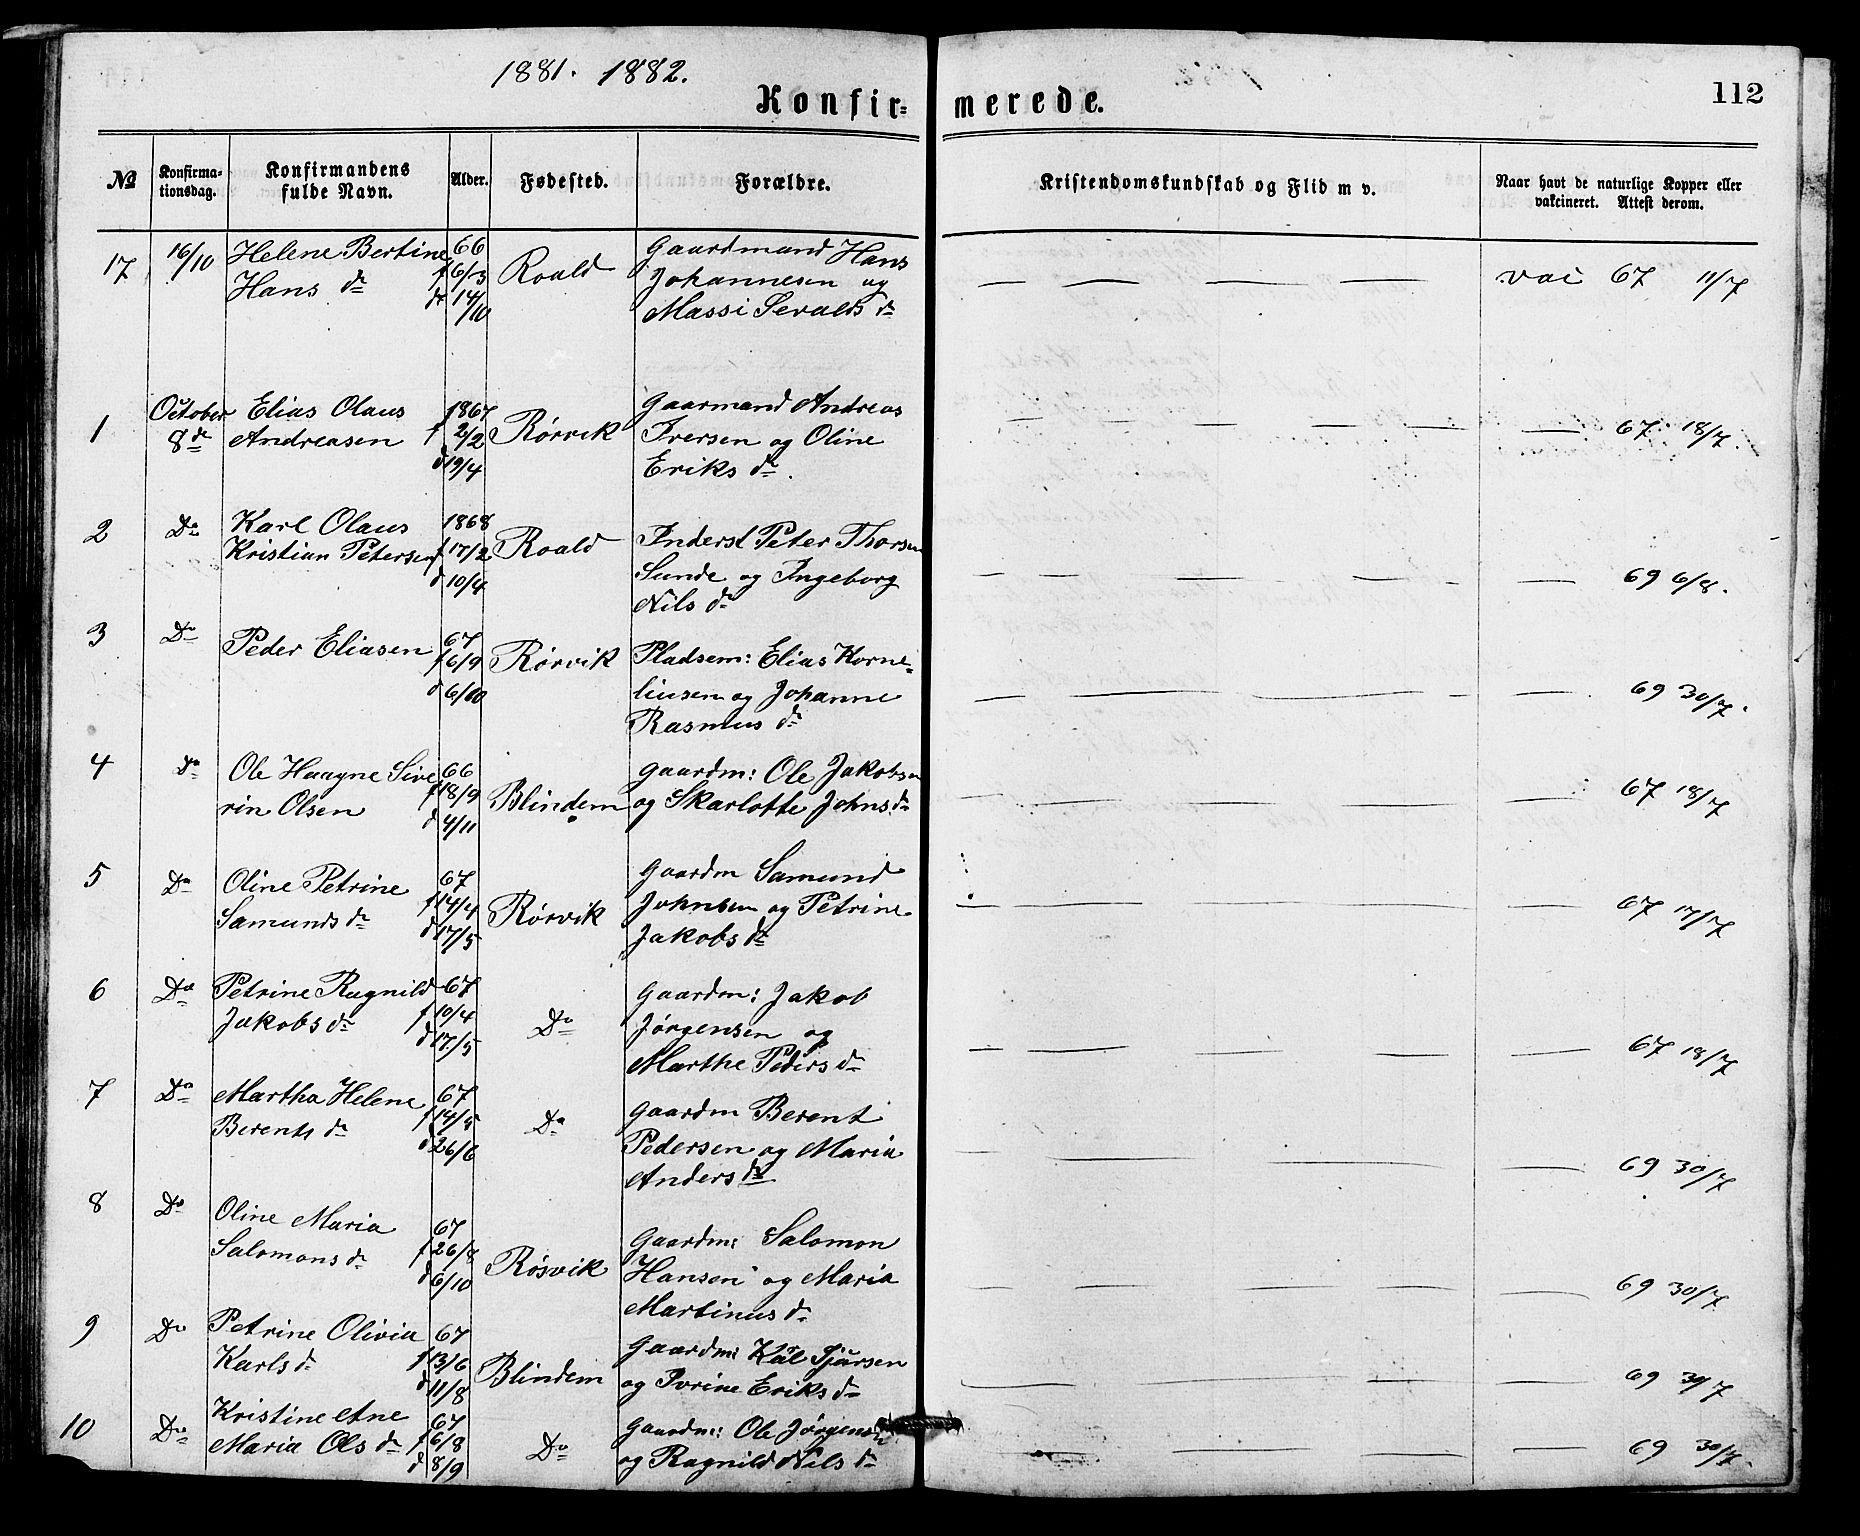 1881. 1882.
Konfir=
merede.
112
No
Konfirma-
tionsdag.
Konfirmandens
fulde Navn.
Alder.
Fødested.
Forældre.
Kristendomskundskab og Flid m v.
Naar havt de naturlige Kopper eller
vakcineret. Attest derom.
17 16/10 Helene Bertine 66 Roald Gaardmand Hans
Hans dr f 6/3 Johannesen og vac 67 11/7
dt 14/10 Massi Sevalds dr
1 October Elias Olaus 1867 Rørvik Gaarmand Andreas
8de Andreasen f 2/2 Iversen og Oline 67 18/7
d 19/4 Eriks dr
2 Do Karl Olaus 1868 Roald Inderst Peter Thorsen
Kristian Petersen f 17/2 Sunde og Ingeborg 69 6/8.
d 10/4 Nils dr
3 Do Peder Eliasen 67 Rørvik Pladsem: Elias Korne=
f 6/9 liusen og Johanne 69 30/7.
d 6/10 Rasmus dr
4 Do Ole Haagne Sive 66 Blindem gaardm: Ole Jakobsen
rin Olsen f 18/9 og Skarlotte Johns dr 67 18/7
d 4/11
5 Do Oline Petrine 67 Rørvik Gaardm Samund
Samunds dr f 14/4 Johnsen og Petrine 67 17/7
d 17/5 Jakobs dr
6 Do Petrine Ragnild 67 Do Gaardm: Jakob
Jakobs dr f 10/4 Jørgensen og
d 17/5 Marthe Peders dr 67 18/7
7 Do Martha Helene 67 Do Gaardm Berent
Berents dr f 14/5 Pedersen og Maria
d 26/6 Anders dr 69 30/7
8 Do Oline Maria 67 Røsvik Gaardm: Salomon
Salomons dr f 26/8 Hansen og Maria
d 6/10 Martinus dr 69 30/7
9 Do Petrine Olivia 67 Blindem Gaardm: Kal
Karls dr f 13/6 og Ivrine Eriks dr 69 30/7
d 11/8
10 Do Kristine Ane 67 Do Gaardm: Ole Jørgensen
Maria Ols dr f 6/8 og Ragnild Nils dr 69 30/7.
d 8/9